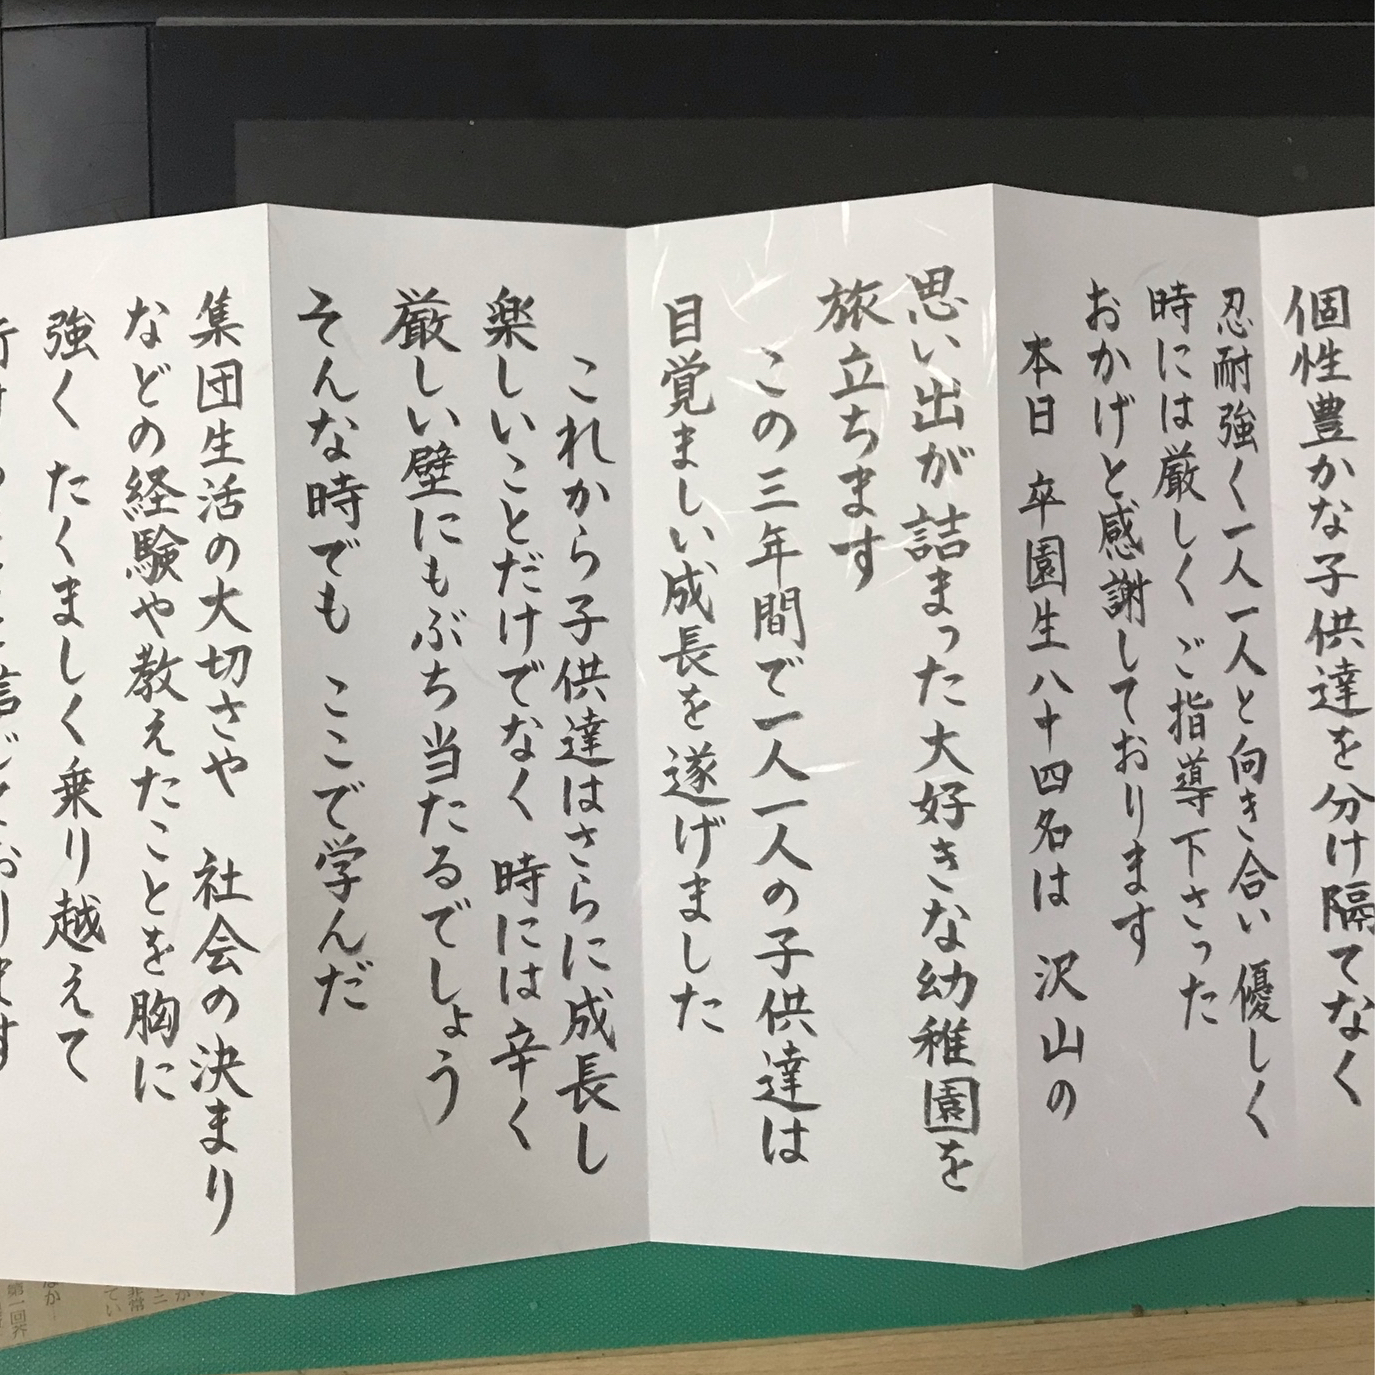 個性豊かな子供達を分け隔てなく
忍耐強く一人一人と向き合い 優しく
時には厳しく ご指導下さった
おかげと感謝しております
本日 卒園生八十四名は 沢山の
思い出が詰まった大好きな幼稚園を
旅立ちます
この三年間で一人一人の子供達は
目覚ましい成長を遂げました
これから子供達はさらに成長し
楽しいことだけでなく 時には辛く
厳しい壁にもぶち当たるでしょう
そんな時でも ここで学んだ
集団生活の大切さや 社会の決まり
などの経験や教えたことを胸に
強く たくましく乗り越えて